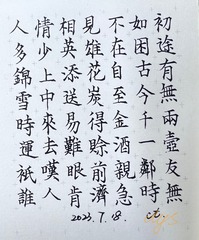 人情相見不如初
多少英雄在困途
錦上添花自古有
雪中送炭至今無
時來易得金千兩
運去難賒酒一壺
衹嘆眼前親鄰友
誰人肯濟急時無
2023.7.18.